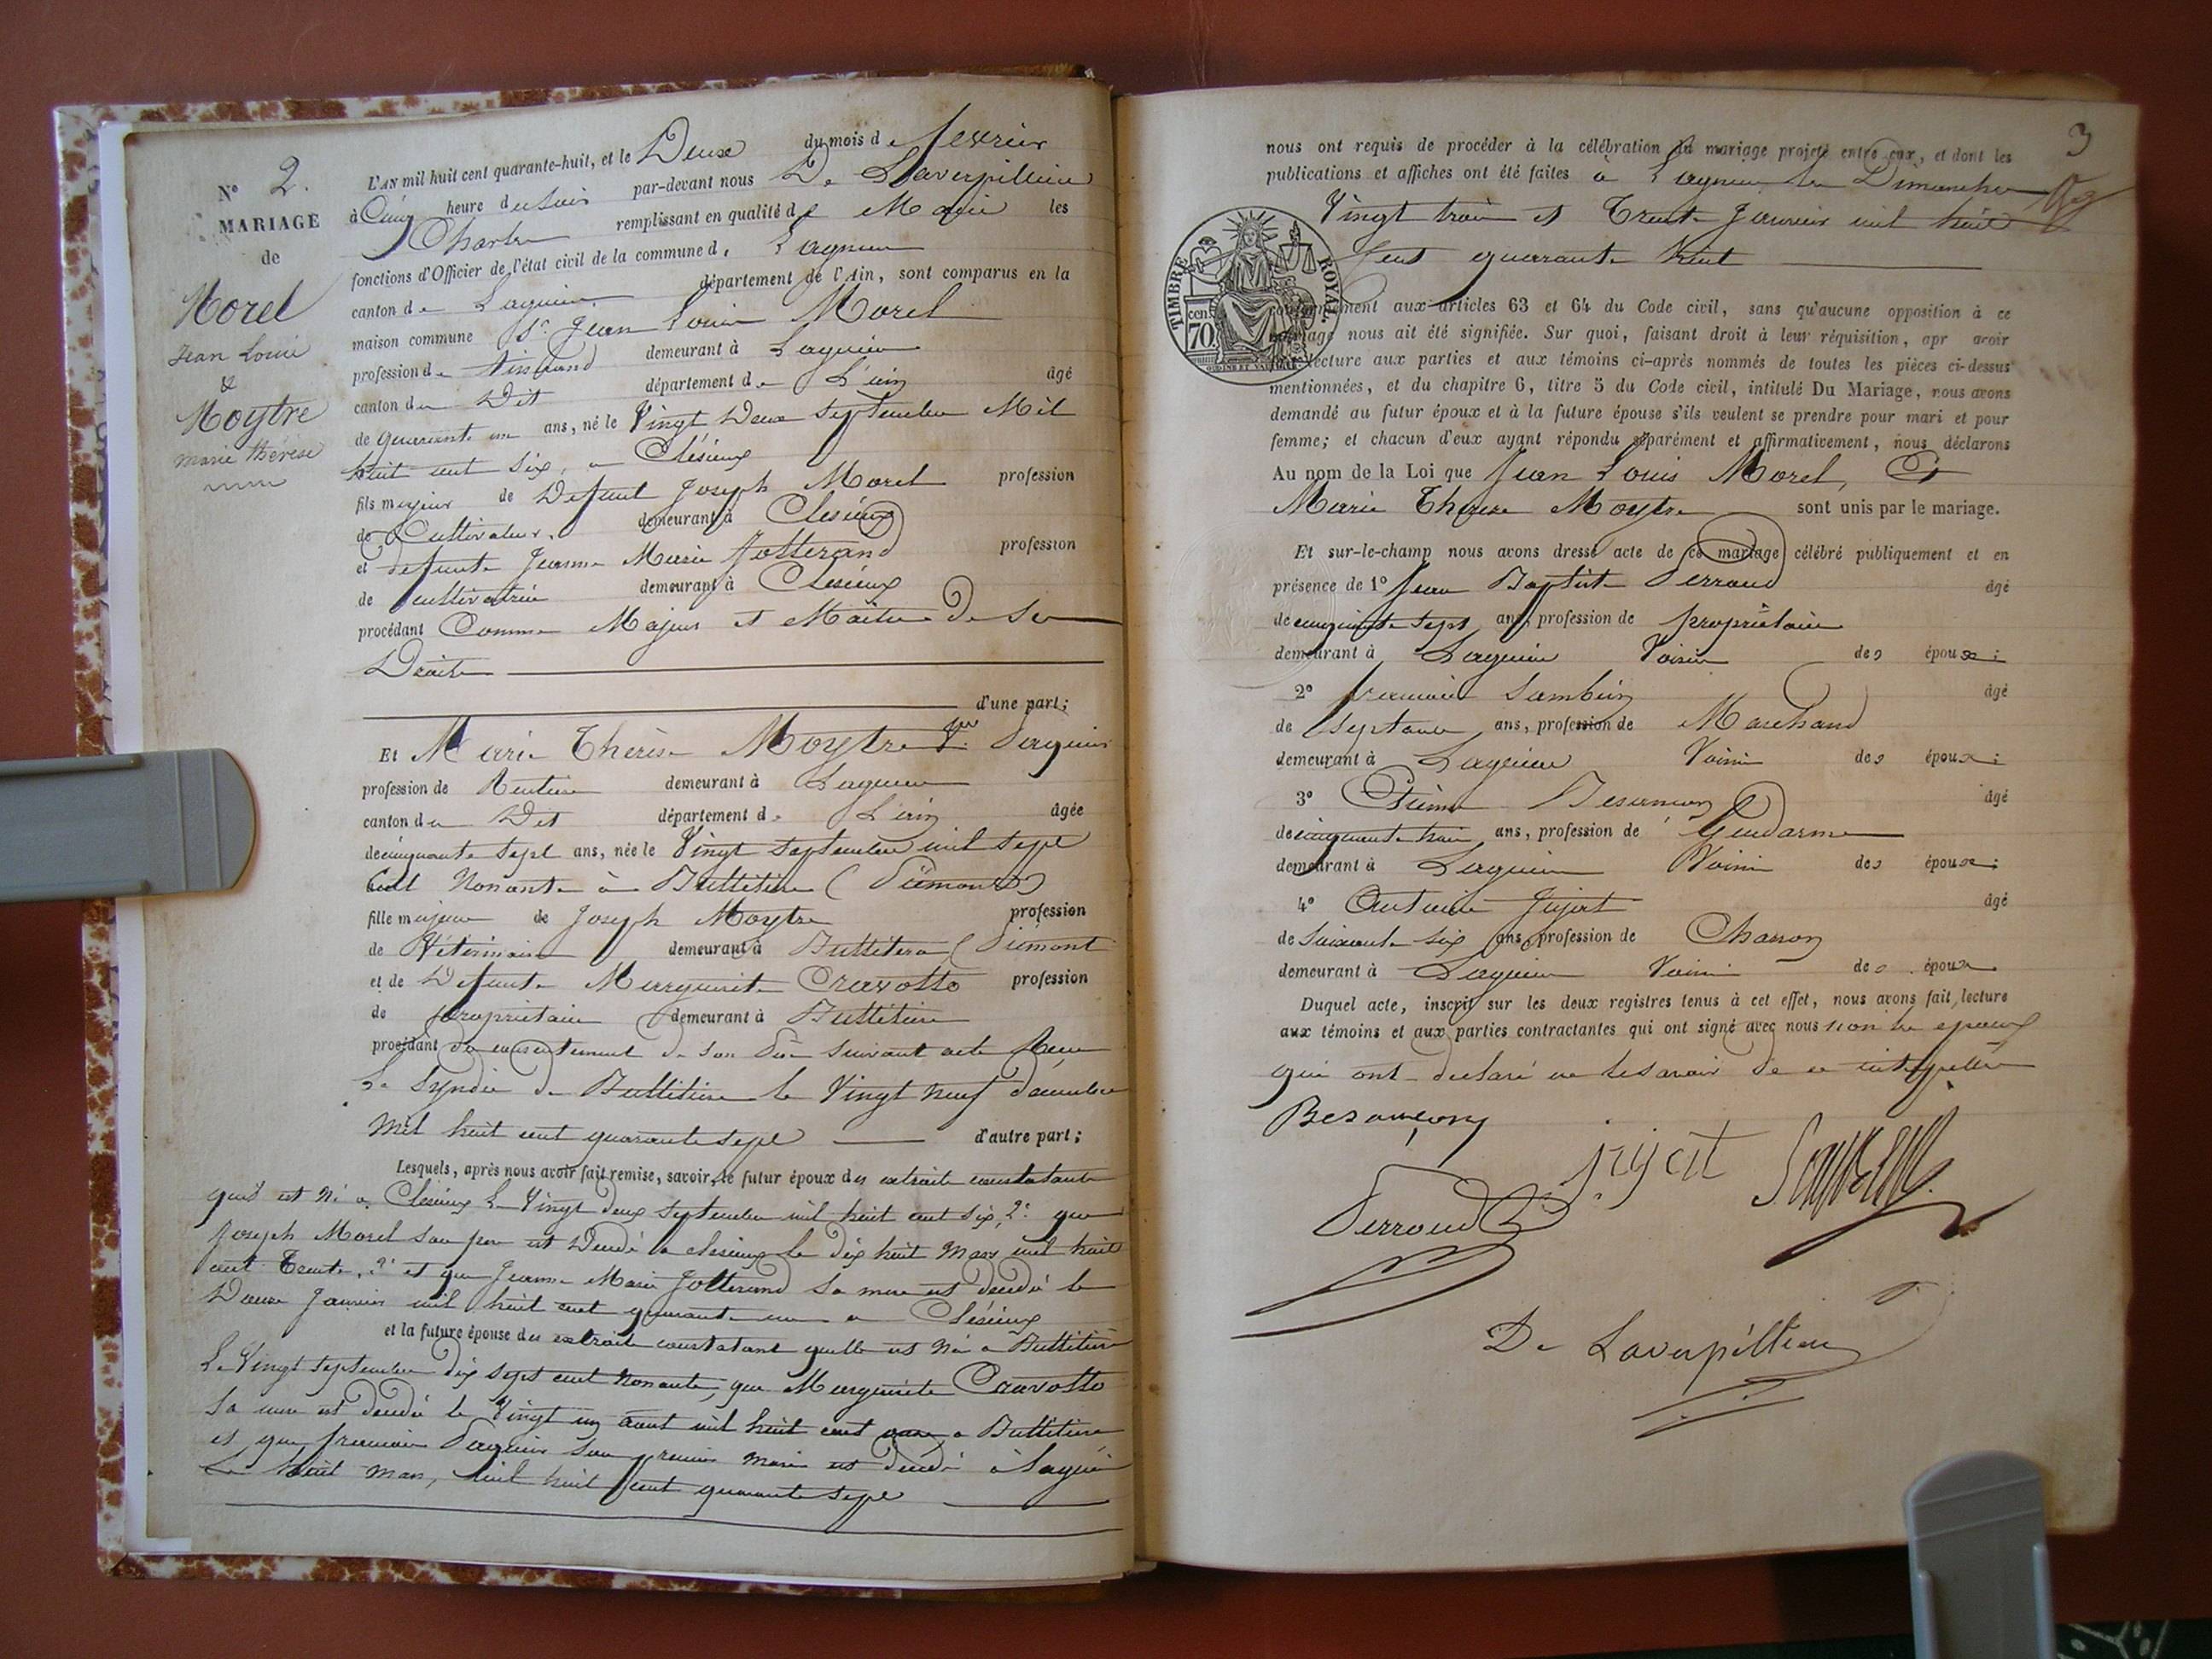 N° 2.
MARIAGE
de
Morel
Jean Louis
&
Moytre
marie thérèse
L'AN mil huit cent quarante-huit, et le Deux du mois de fevrier
à Cinq heure du Soir par-devant nous De Laverpilliere
Charles remplissant en qualité de Maire les
fonctions d'Officier de l'état civil de la commune de Lagnieu
canton de Lagnieu département de l'Ain, sont comparus en la
maison commune Sr. Jean Louis Morel
profession de Tisserand demeurant à Lagnieu
canton du Dit département de L'ain âgé
de quarante un ans, né le Vingt Deux Septembre Mil
huit cent Six, a Clésieux
fils majeur de Defunt Joseph Morel profession
de Cultivateur demeurant à Clesieux
et defunte Jeanne Marie Jotterand profession
de cultivatrice demeurant à Clesieux
procédant Comme Majeur et Maitre De Ses
Droits
d'une part;
Et Marie Therèse Moytre Vve Perquin
profession de Rentiere demeurant à Lagnieu
canton du Dit département de L'ain âgée
de cinquante Sept ans, née le Vingt Septembre mil Sept
Cent Nonante à Buttiliere (Piémont)
fille majeure de Joseph Moytre profession
de Véterinaire demeurant à Buttiliera (Piémont
et de Defunte Marguerite Cravotto profession
de propriétaire demeurant à Buttiliere
procédant du consentement de son Père suivant acte Recu
Le Syndic de Buttiliere le Vingt neuf décembre
Mil huit cent quarante sept d'autre part;
Lesquels, après nous avoir fait remise, savoir, le futur époux des extraits constatants
qu'il est Né a Clesieux Le Vingt deux Septembre mil huit cent six, 2° que
Joseph Morel Son pere est Décédé a clesieux le dix huit mars mil huit
cent Trente, 3° et que Jeanne Marie Jotterand Sa mere est decedé le
Douze Janvier mil huit cent quarante un a Clésieux
et la future épouse des extraits constatant quelle est Né a Buttiliere
Le Vingt Septembre dix Sept cent Nonante, que Marguerite Cravotto
Sa mere est décédée le Vingt un aout mil huit cent onze a Buttiliere
et que francois Perquin Son premier mari est décédé à Lagnieu
Le huit mars, mil huit cent quarante Sept
3
nous ont requis de procéder à la célébration du mariage projeté entre eux, et dont les
publications et affiches ont été faites à Lagnieu les Dimanches
Vingt trois et Trente Janvier mil huit
Cent quarante huit
TIMBRE ROYAL
70 cen.
conformément aux articles 63 et 64 du Code civil, sans qu'aucune opposition à ce
mariage nous ait été signifiée. Sur quoi, faisant droit à leur réquisition, apr avoir
fait lecture aux parties et aux témoins ci-après nommés de toutes les pièces ci-dessus
mentionnées, et du chapitre 6, titre 5 du Code civil, intitulé Du Mariage, nous avons
demandé au futur époux et à la future épouse s'ils veulent se prendre pour mari et pour
femme; et chacun d'eux ayant répondu séparément et affirmativement, nous déclarons
Au nom de la Loi que Jean Louis Morel, Et
Marie Therese Moytre sont unis par le mariage.
Et sur-le-champ nous avons dressé acte de ce mariage célébré publiquement et en
présence de 1° Jean Baptiste Perroud âgé
de cinquante Sept ans, profession de propriétaire
demeurant à Lagnieu Voisin des époux;
2° francois Sambin âgé
de Septante ans, profession de Marchand
demeurant à Lagnieu Voisin des époux;
3° Besançon âgé
de cinquante trois ans, profession de Gendarme
demeurant à Lagnieu Voisin des époux;
4° Antoine Jujat âgé
de Soixante Six ans, profession de Charron
demeurant à Lagnieu Voisin des époux
Duquel acte, inscrit sur les deux registres tenus à cet effet, nous avons fait lecture
aux témoins et aux parties contractantes qui ont signé avec nous non les epoux
qui ont declaré ne le savoir de ce interpellés
Besançon
jujat
Perroud
De Laverpilliere